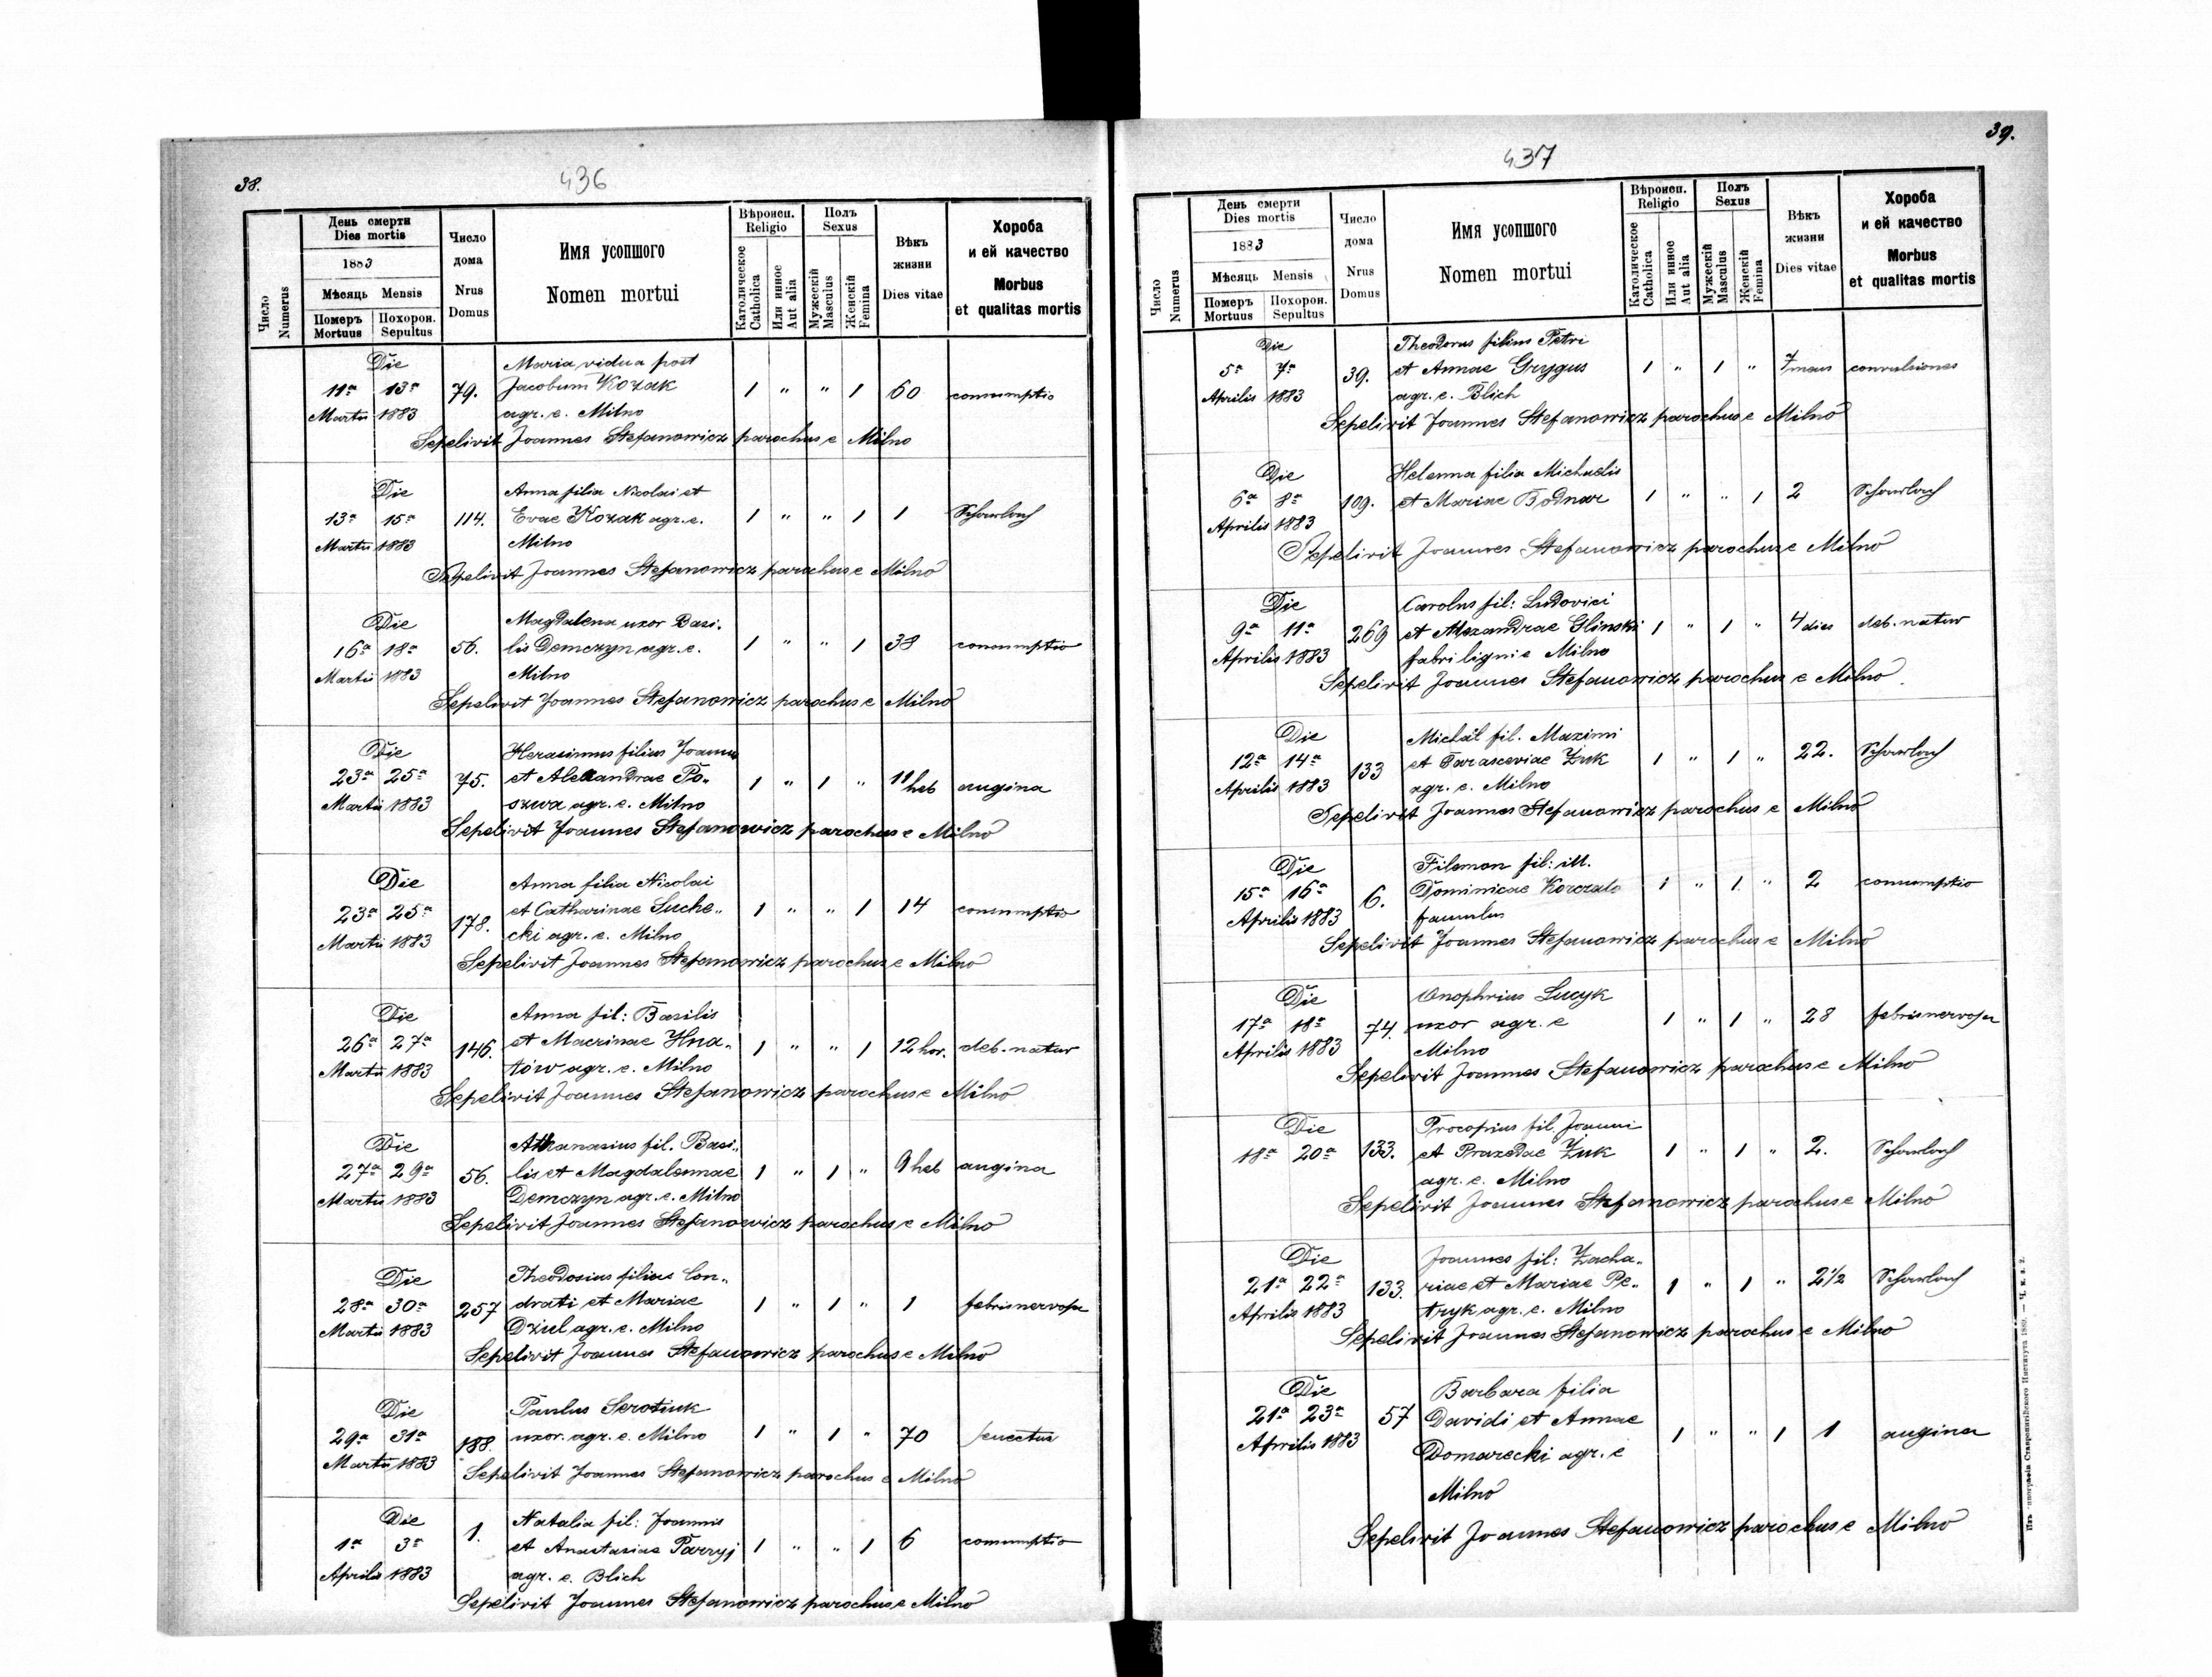 38.
436
День смерти
Dies mortis
1883
Мѣсяць Mensis
Померъ
Mortuus
Похорон.
Sepultus
Число
Numerus
Число
дома
Nrus
Domus
Имя усопшого
Nomen mortui
Вѣроисп.
Religio
Католическое
Catholica
Или инное
Aut alia
Полъ
Sexus
Мужескій
Masculus
Женскій
Femina
Вѣкъ
жизни
Dies vitae
Хороба
и ей качество
Morbus
et qualitas mortis
Die Maria vidua post
11a 13a 79. Jacobum Kozak 1 " " 1 60 consumptio
Martii 1883 agr. e. Milno
Sepelivit Joannes Stefanowicz parochus e Milno
Die Anna filia Nicolai et
13a 15a 114. Evae Kozak agr. e. 1 " " 1 1 Scharlach
Martii 1883 Milno
Sepelivit Joannes Stefanowicz parochus e Milno
Die Magdalena uxor Basi-
16a 18a 56. lis Demczyn agr. e. 1 " " 1 38 consumptio
Martii 1883 Milno
Sepelivit Joannes Stefanowicz parochus e Milno
Die Herasimus filius Joannis
23a 25a 75. et Alexandrae Po- 1 " 1 " 11 heb angina
Martii 1883 szwa agr. e. Milno
Sepelivit Joannes Stefanowicz parochus e Milno
Die Anna filia Nicolai
23a 25a 178. et Catharinae Suche- 1 " " 1 14 consumptio
Martii 1883 cki agr. e. Milno
Sepelivit Joannes Stefanowicz parochus e Milno
Die Anna fil: Basilis
26a 27a 146. et Macrinae Hna- 1 " " 1 12 hor. deb. natur
Martii 1883 tów agr. e. Milno
Sepelivit Joannes Stefanowicz parochus e Milno
Die Athanasius fil. Basi-
27a 29a 56. lis et Magdalennae 1 " 1 " 9 heb angina
Martii 1883 Demczyn agr. e. Milno
Sepelivit Joannes Stefanowicz parochus e Milno
Die Theodosius filius Con-
28a 30a 257 drati et Mariae 1 " 1 " 1 febris nervosa
Martii 1883 Dziul agr. e. Milno
Sepelivit Joannes Stefanowicz parochus e Milno
Die Paulus Serotiuk
29a 31a 188. uxor. agr. e. Milno 1 " 1 " 70 senectus
Martii 1883
Sepelivit Joannes Stefanowicz parochus e Milno
Die Natalia fil: Joannis
1a 3a 1. et Anastasiae Parryj 1 " " 1 6 consumptio
Aprilis 1883 agr. e. Blich
Sepelivit Joannes Stefanowicz parochus e Milno
39.
437
День смерти
Dies mortis
1883
Мѣсяць Mensis
Померъ
Mortuus
Похорон.
Sepultus
Число
Numerus
Число
дома
Nrus
Domus
Имя усопшого
Nomen mortui
Вѣроисп.
Religio
Католическое
Catholica
Или инное
Aut alia
Полъ
Sexus
Мужескій
Masculus
Женскій
Femina
Вѣкъ
жизни
Dies vitae
Хороба
и ей качество
Morbus
et qualitas mortis
Die Theodorus filius Petri
5a 7a 39. et Annae Grygus 1 " 1 " 7 mens convulsiones
Aprilis 1883 agr. e. Blich
Sepelivit Joannes Stefanowicz parochus e Milno
Die Helenna filia Michaelis
6a 8a 109. et Mariae Bodnar 1 " " 1 2 Scharlach
Aprilis 1883
Sepelivit Joannes Stefanowicz parochus e Milno
Die Carolus fil: Ludovici
9a 11a 269 et Alexandrae Glinski 1 " 1 " 4 dies deb. natur
Aprilis 1883 fabri ligni e Milno
Sepelivit Joannes Stefanowicz parochus e Milno
Die Michál fil. Maximi
12a 14a 133 et Parasceviae Żuk 1 " 1 " 22. Scharlach
Aprilis 1883 agr. e. Milno
Sepelivit Joannes Stefanowicz parochus e Milno
Die Filemon fil: ill.
15a 16a 6. Dominicae 1 " 1. " 2 consumptio
Aprilis 1883 famulus
Sepelivit Joannes Stefanowicz parochus e Milno
Die Onophrius Lucyk
17a 18a 74. uxor agr. e 1 " 1 " 28 febris nervosa
Aprilis 1883 Milno
Sepelivit Joannes Stefanowicz parochus e Milno
Die Procopius fil. Joanni
18a 20a 133. et Praxedae Żuk 1 " 1 " 2. Scharlach
agr. e. Milno
Sepelivit Joannes Stefanowicz parochus e Milno
Die Joannes fil: Zacha-
21a 22a 133. riae et Mariae Pe- 1 " 1 " 2 1/2 Scharlach
Aprilis 1883 tryk agr. e. Milno
Sepelivit Joannes Stefanowicz parochus e Milno
Die Barbara filia
21a 23a 57 Davidi et Annae 1 " " 1 1 angina
Aprilis 1883 Domarecki agr. e
Milno
Sepelivit Joannes Stefanowicz parochus e Milno